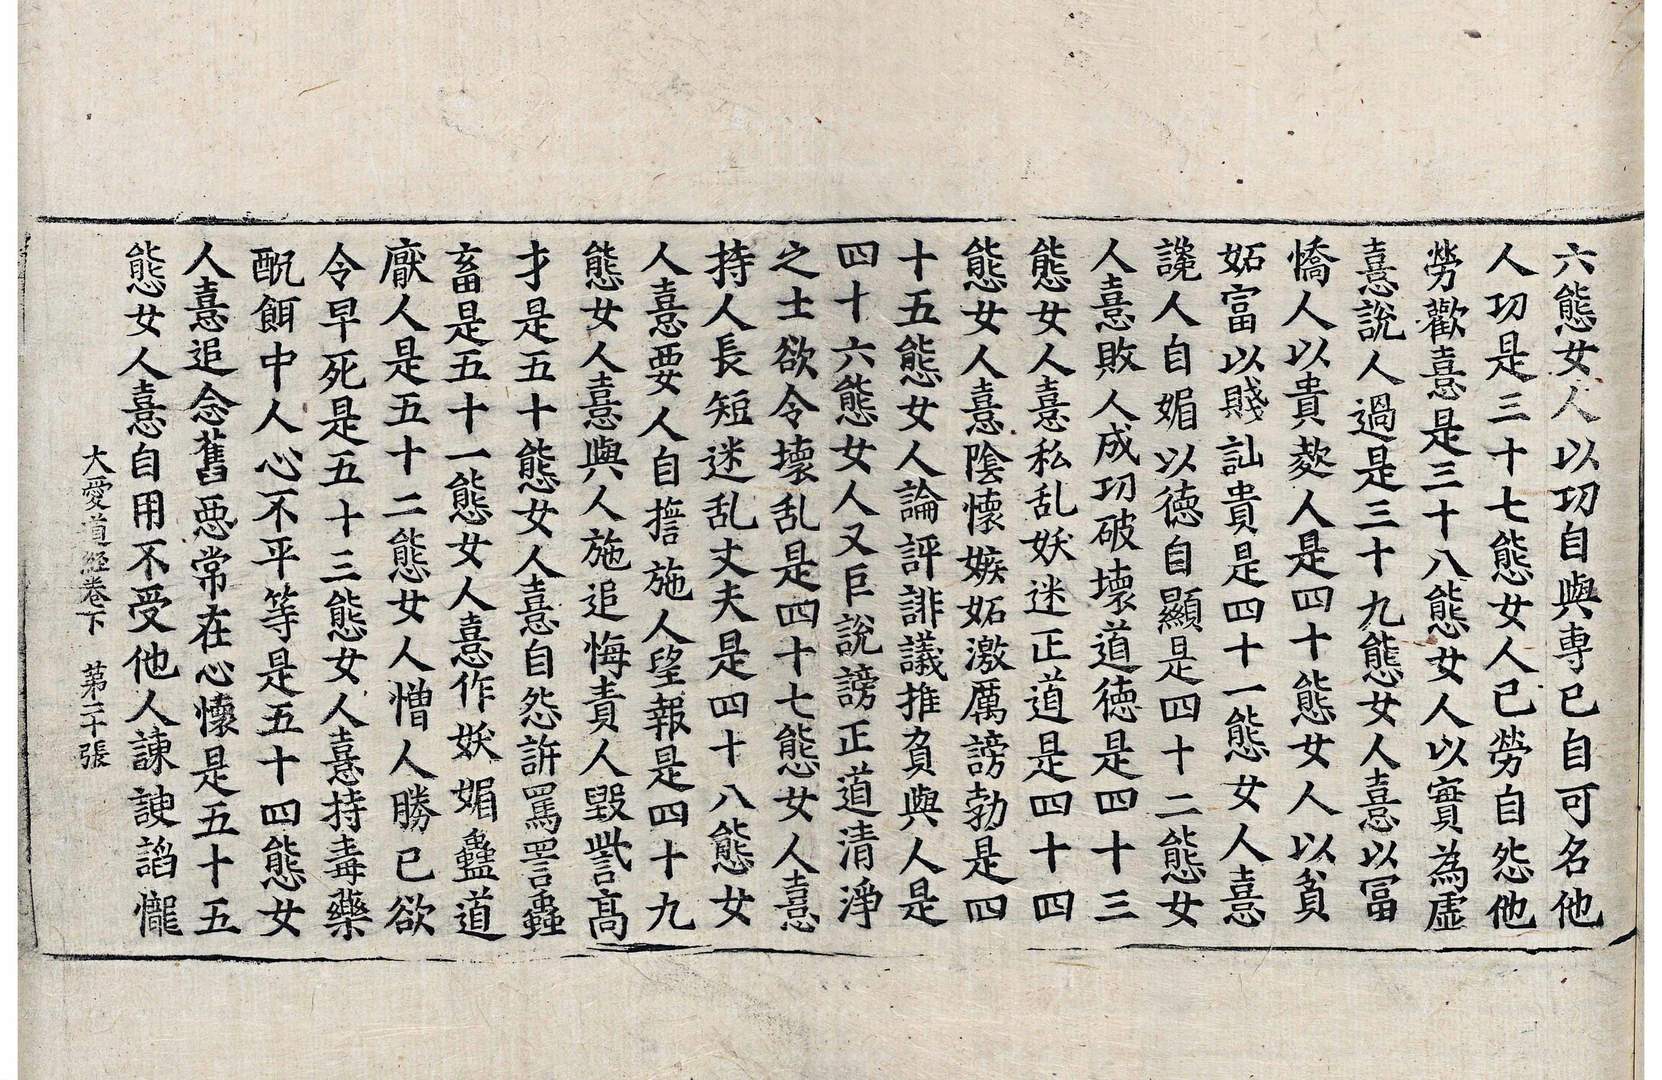 六態女人以功自與專己自可名他
人功是三十七態女人已勞自怨他
勞歡憙是三十八態女人以實為虛
憙說人過是三十九態女人憙以冨
憍人以貴欺人是四十態女人以貧
妬富以賤訕貴是四十一態女人憙
讒人自媚以徳自顯是四十二態女
人憙敗人成功破壞道徳是四十三
態女人憙私乱妖迷正道是四十四
態女人憙陰懷嫉妬激厲謗勃是四
十五態女人論評誹議推負與人是
四十六態女人又巨說謗正道清淨
之士欲令壞乱是四十七態女人憙
持人長短迷乱丈夫是四十八態女
人憙要人自擔施人望報是四十九
態女人憙與人施追悔責人毀訾高
才是五十態女人憙自怨訴罵詈蟲
畜是五十一態女人憙作妖媚蠱道
厭人是五十二態女人憎人勝已欲
令早死是五十三態女人憙持毒藥
酖餌中人心不平等是五十四態女
人憙追念舊惡常在心懷是五十五
態女人憙自用不受他人諫諛謟㦨
大愛道經卷下　第二十張